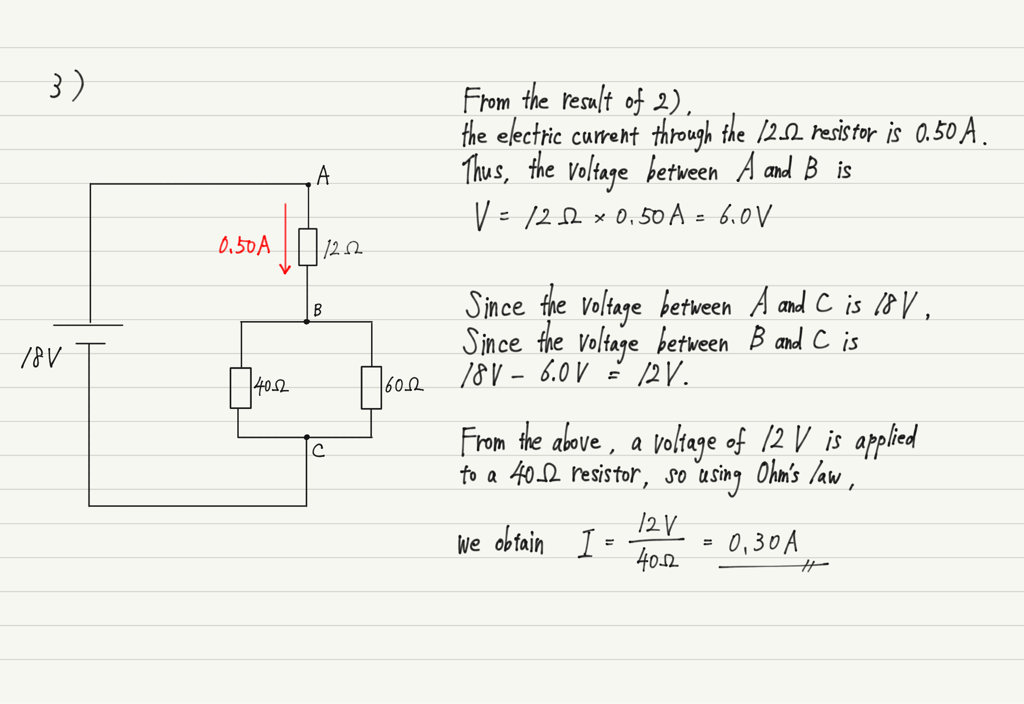 3)
From the result of 2),
the electric current through the 12Ω resistor is 0.50A.
Thus, the voltage between A and B is
V = 12Ω × 0.50A = 6.0V
A
0.50A
12Ω
B
18V
40Ω
60Ω
C
Since the voltage between A and C is 18V,
Since the voltage between B and C is
18V - 6.0V = 12V.
From the above, a voltage of 12V is applied
to a 40Ω resistor, so using Ohm's law,
we obtain I = 12V/40Ω = 0.30A